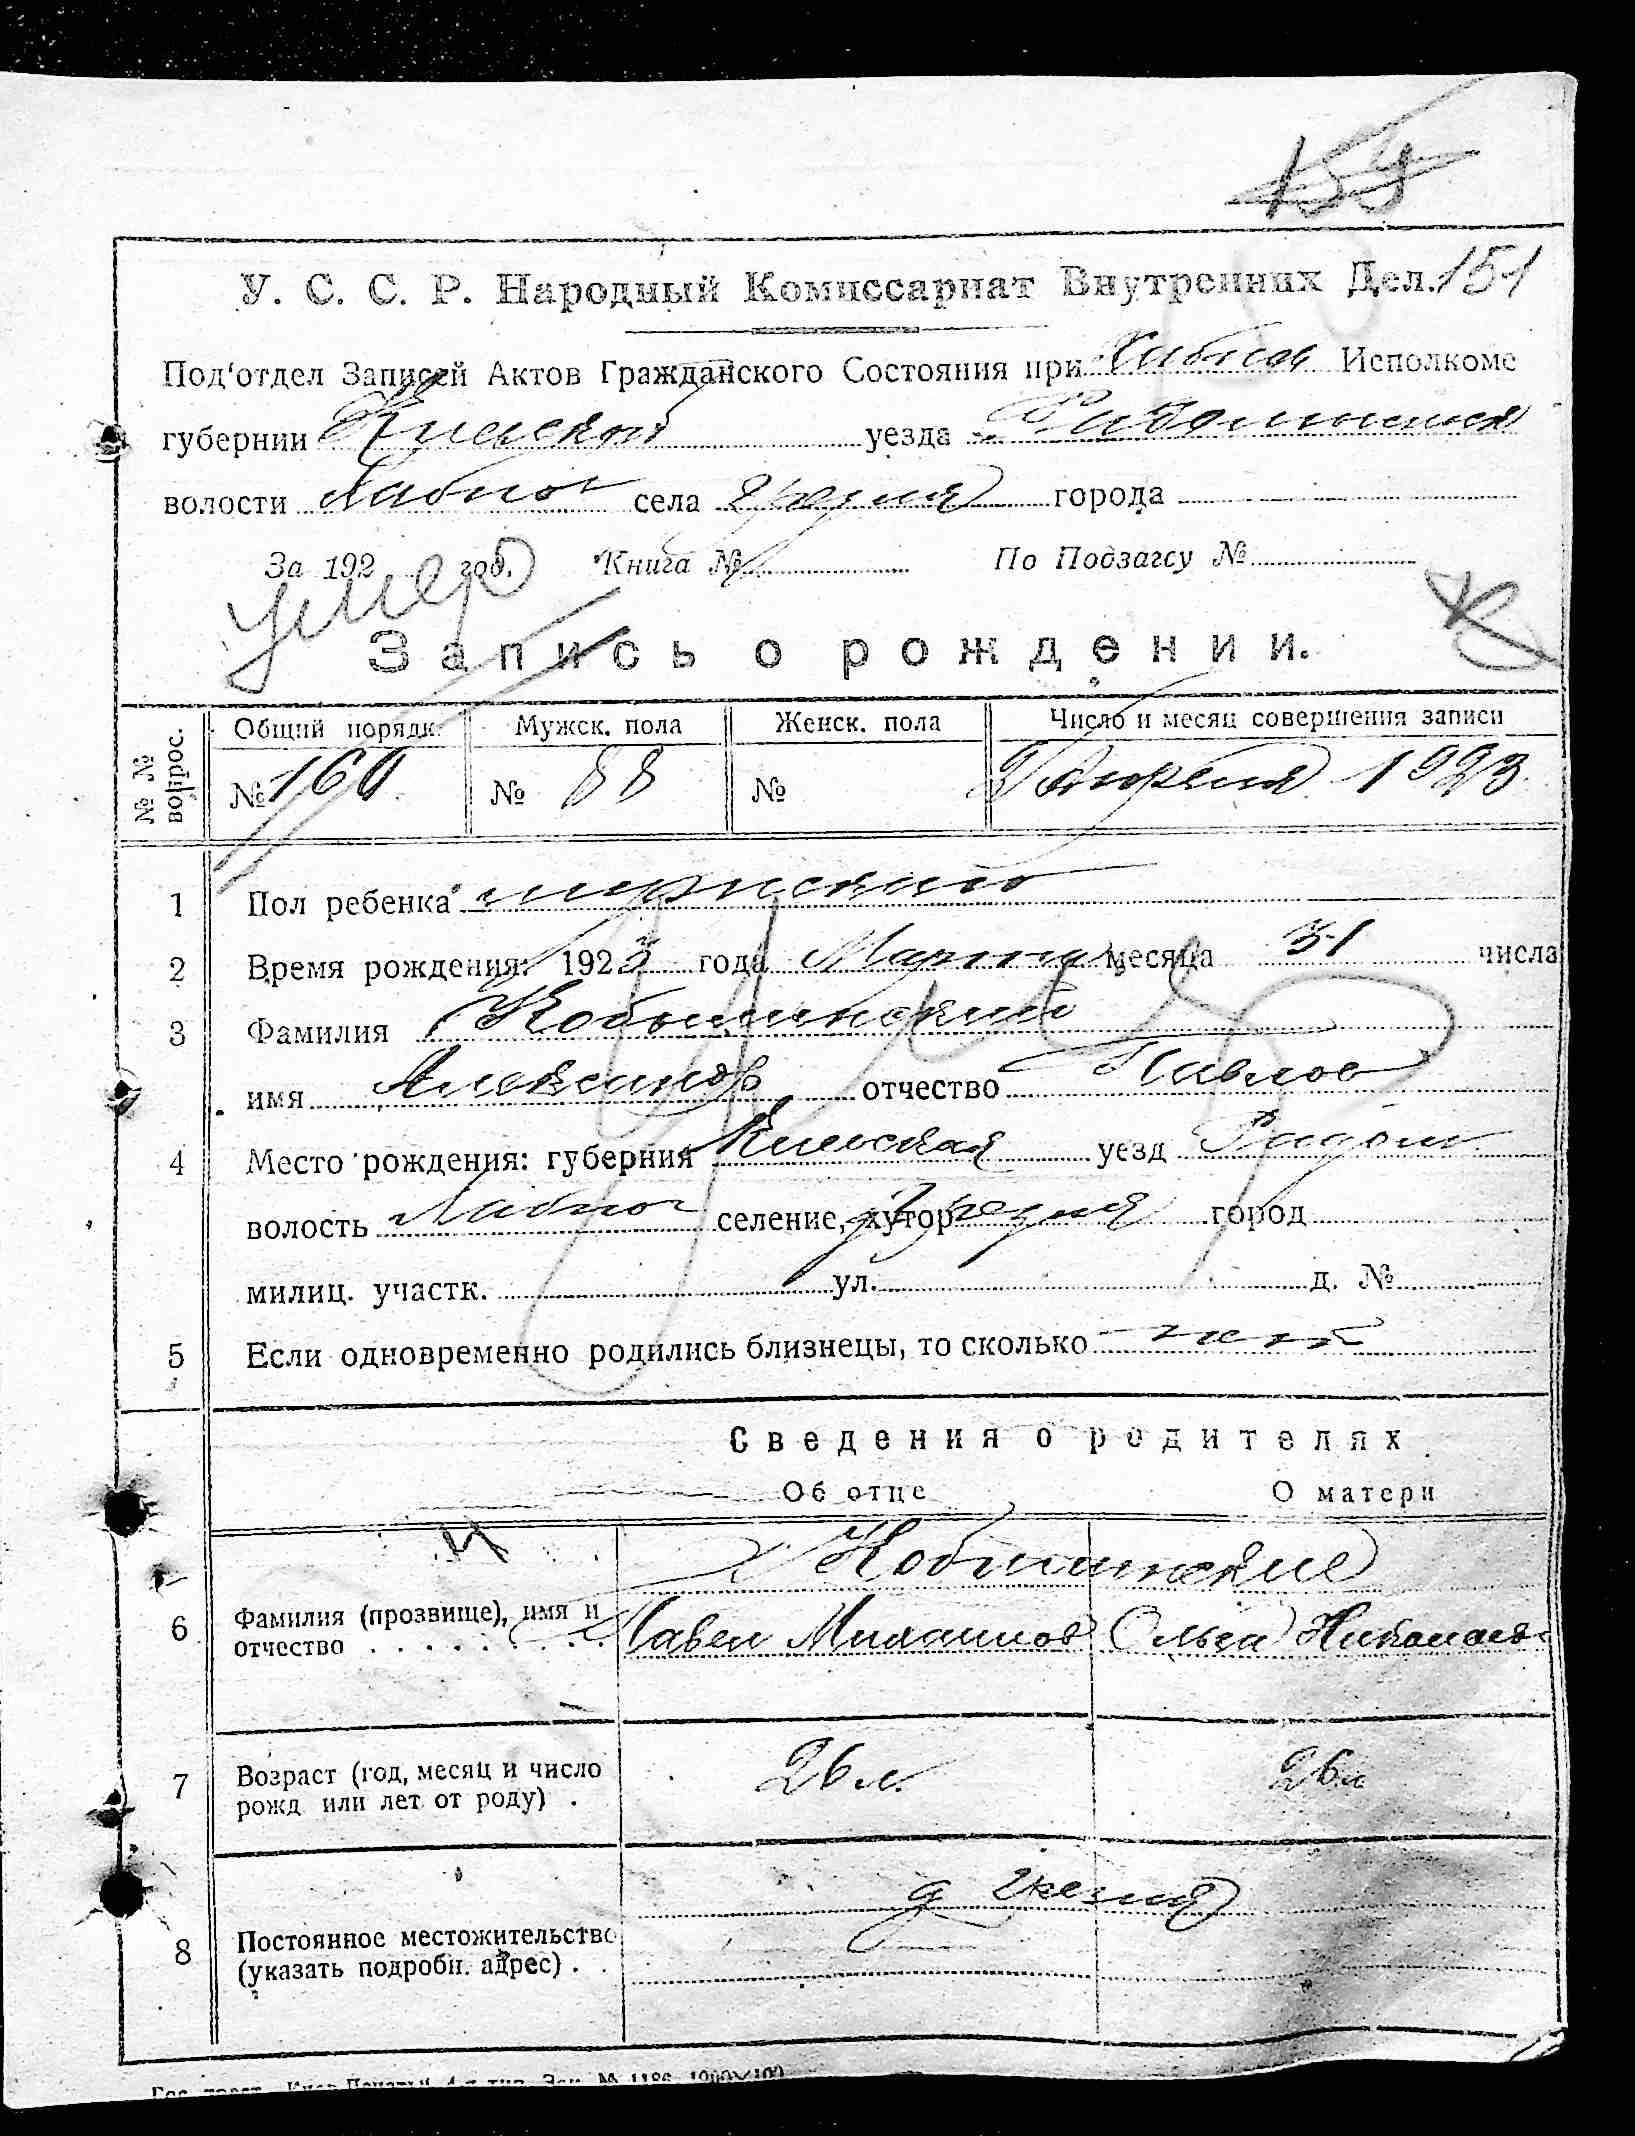 У. С. С. Р. Народный Комиссариат Внутренних Дел. 151
Под'отдел Записей Актов Гражданского Состояния при Исполкоме
губернии Киевской уезда
волости села города
За 192 год. Книга № По Подзагсу №
умер
Запись о рождении.
№ № вопрос.
Общий порядк. Мужск. пола Женск. пола Число и месяц совершения записи
№ 160 № 88 № Апреля 1923
1 Пол ребенка мужского
2 Время рождения: 1923 года Марта месяца 31 числа
3 Фамилия
имя Александр отчество Павлов
4 Место рождения: губерния Киевская уезд Радом
волость селение, хутор город
милиц. участк. ул. д. №
5 Если одновременно родились близнецы, то сколько нет
умер
Сведения о родителях
Об отце О матери
6 Фамилия (прозвище), имя и
отчество Павел Михаилов Ольга Николаев
7 Возраст (год, месяц и число
рожд или лет от роду) . 26 л. 26 л
8 Постоянное местожительство
(указать подробн. адрес) . .